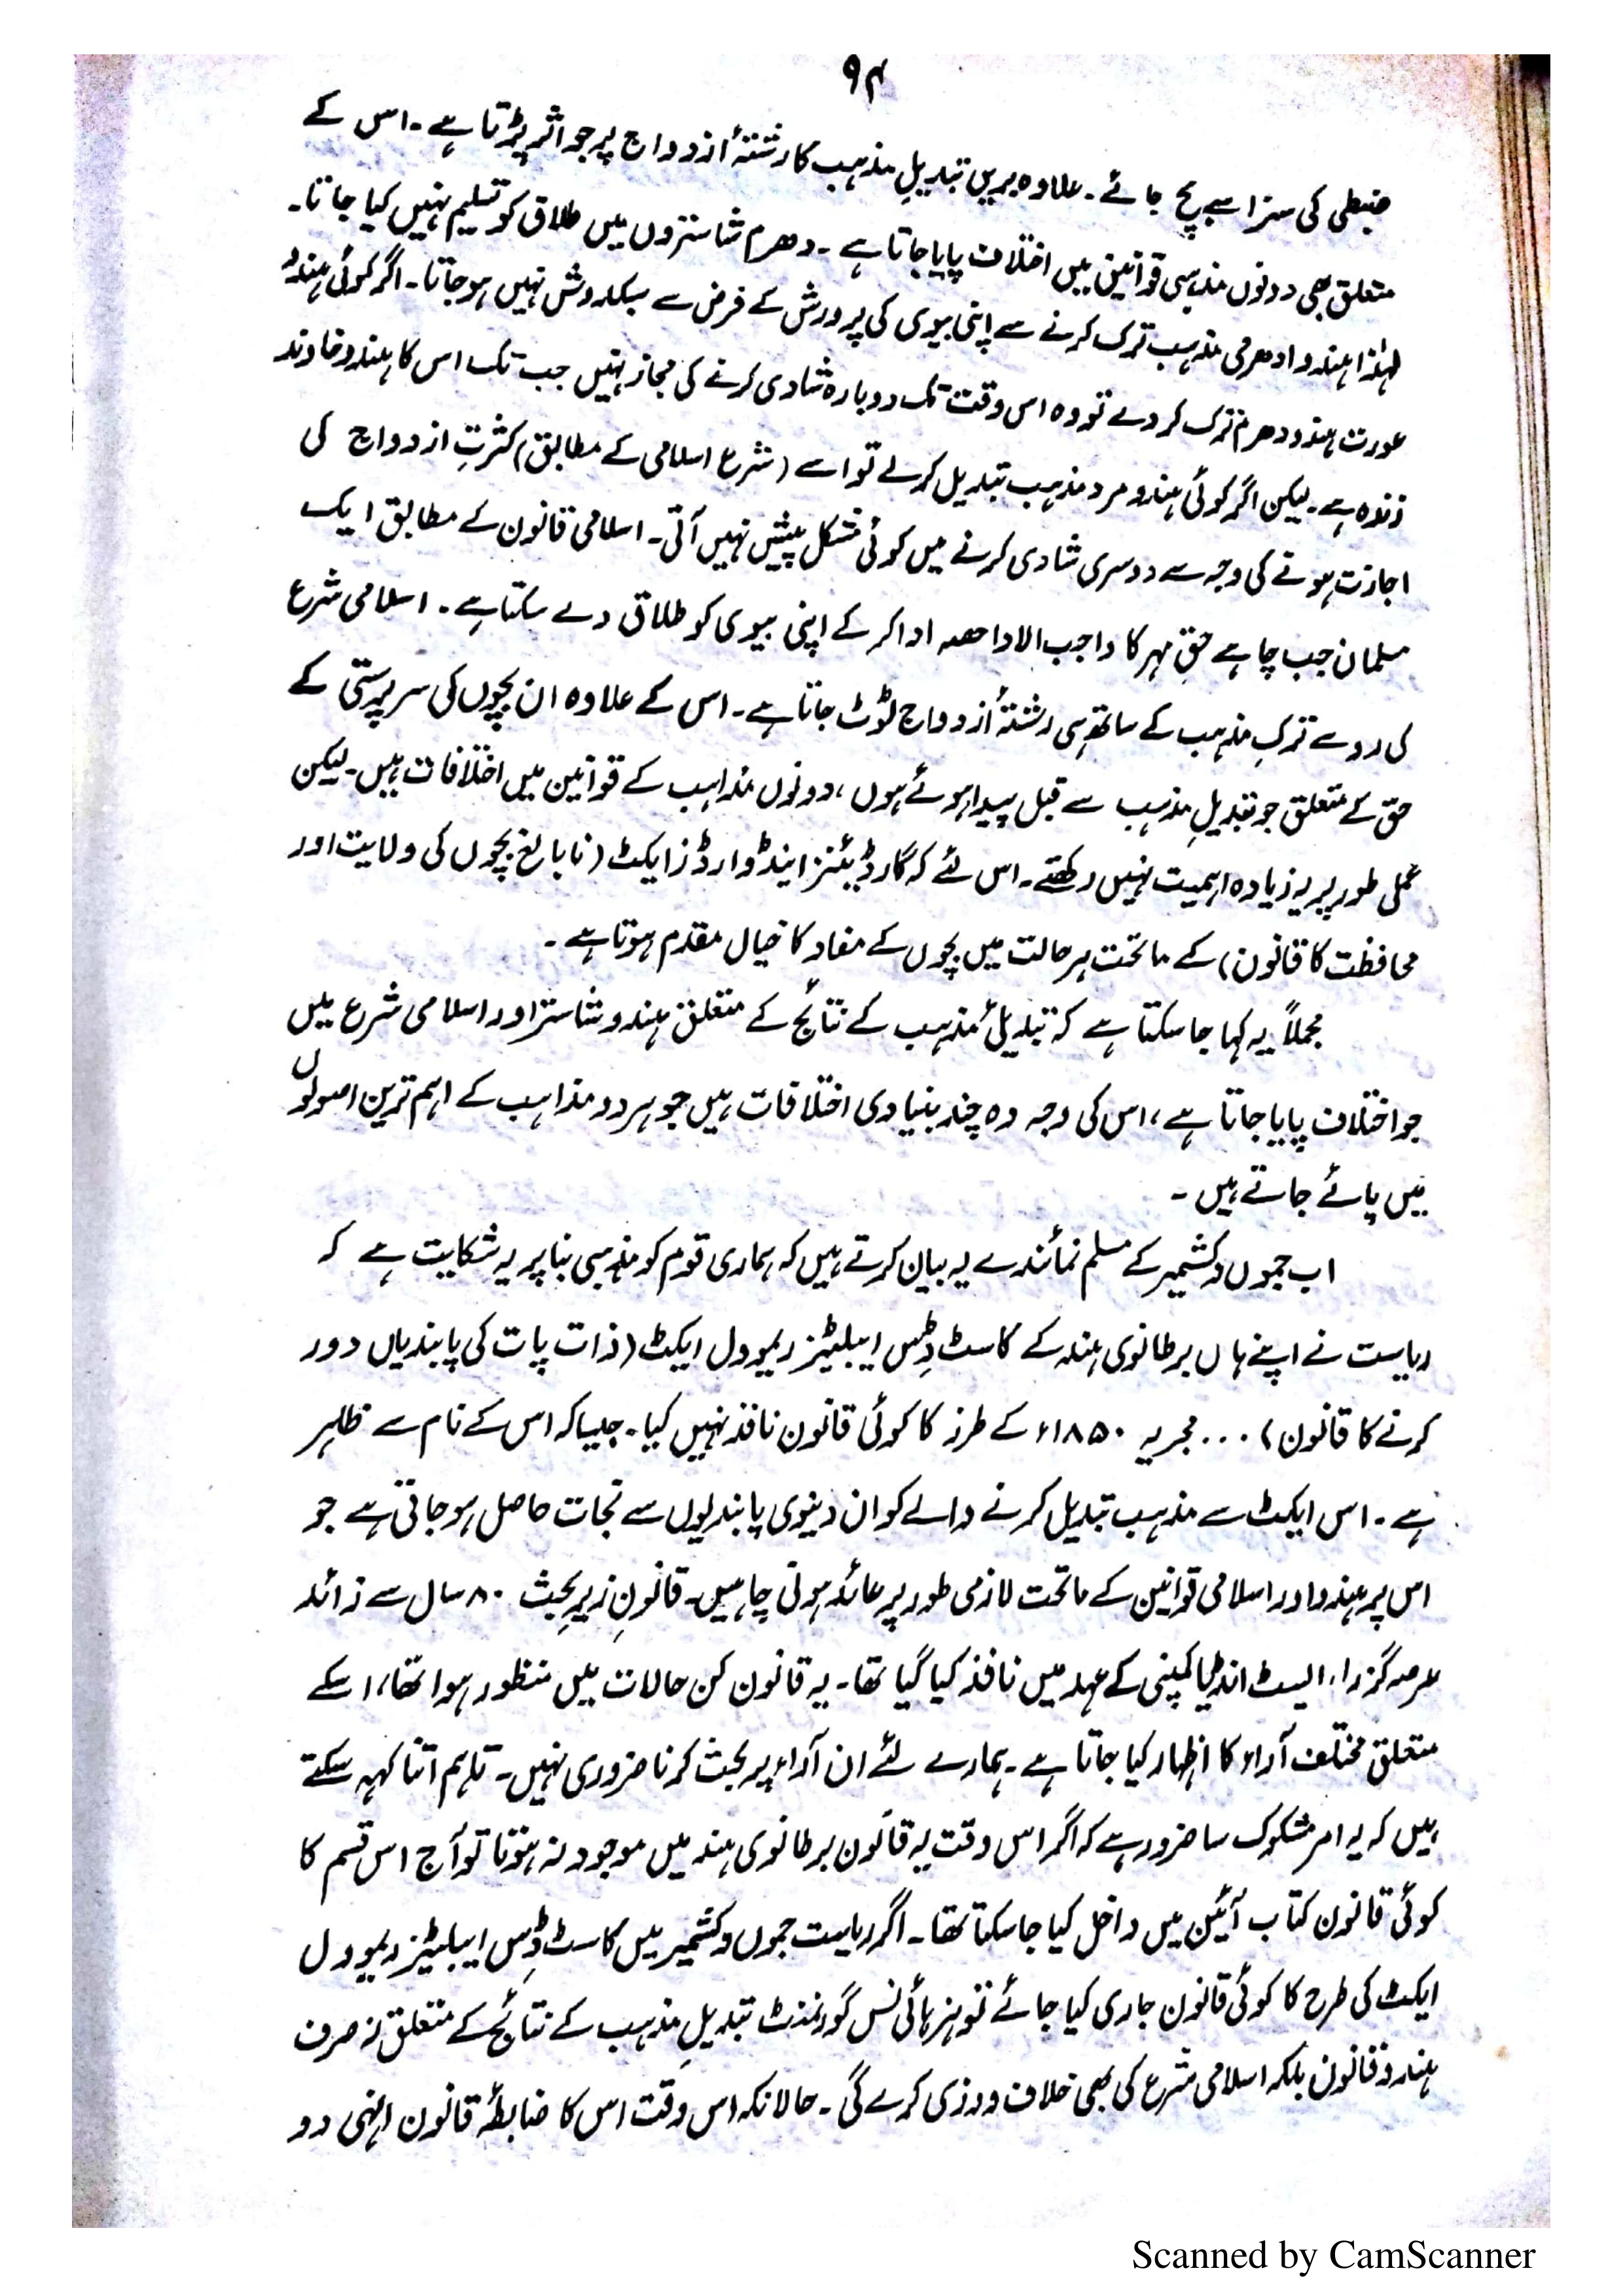 ۹۴
ضبطی کی سزا سے بچ جائے۔ علاوہ بریں تبدیلِ مذہب کا رشتۂ ازدواج پر جو اثر پڑتا ہے۔ اس کے
متعلق بھی دونوں مذہبی قوانین میں اختلاف پایا جاتا ہے۔ دھرم شاستروں میں طلاق کو تسلیم نہیں کیا جاتا۔
لہٰذا ہندو ادھرمی مذہب ترک کرنے سے اپنی بیوی کی پرورش کے فرض سے سبکدوش نہیں ہو جاتا۔ اگر کوئی ہندو
عورت ہندو دھرم ترک کر دے تو وہ اس وقت تک دوبارہ شادی کرنے کی مجاز نہیں جب تک اس کا ہندو خاوند
زندہ ہے۔ لیکن اگر کوئی ہندو مرد مذہب تبدیل کر لے تو اسے (شرع اسلامی کے مطابق) کثرتِ ازدواج کی
اجازت ہونے کی وجہ سے دوسری شادی کرنے میں کوئی مشکل پیش نہیں آتی۔ اسلامی قانون کے مطابق ایک
مسلمان جب چاہے حقِ مہر کا واجب الادا حصہ ادا کر کے اپنی بیوی کو طلاق دے سکتا ہے۔ اسلامی شرع
کی رو سے ترکِ مذہب کے ساتھ ہی رشتۂ ازدواج ٹوٹ جاتا ہے۔ اس کے علاوہ ان بچوں کی سرپرستی کے
حق کے متعلق جو تبدیلِ مذہب سے قبل پیدا ہوئے ہوں، دونوں مذاہب کے قوانین میں اختلافات ہیں۔ لیکن
عملی طور پر یہ زیادہ اہمیت نہیں رکھتے۔ اس لئے کہ گارڈیئنز اینڈ وارڈز ایکٹ (نابالغ بچوں کی ولایت اور
محافظت کا قانون) کے ماتحت ہر حالت میں بچوں کے مفاد کا خیال مقدم ہوتا ہے۔
مجملاً یہ کہا جا سکتا ہے کہ تبدیلیٔ مذہب کے نتائج کے متعلق ہندو شاستر اور اسلامی شرع میں
جو اختلاف پایا جاتا ہے، اس کی وجہ وہ چند بنیادی اختلافات ہیں جو ہر دو مذاہب کے اہم ترین اصولوں
میں پائے جاتے ہیں۔
اب جموں و کشمیر کے مسلم نمائندے یہ بیان کرتے ہیں کہ ہماری قوم کو مذہبی بنا پر یہ شکایت ہے کہ
ریاست نے اپنے ہاں برطانوی ہند کے کاسٹ ڈِس ایبلیٹیز ریموول ایکٹ (ذات پات کی پابندیاں دور
کرنے کا قانون) ... مجریہ ۱۸۵۰ء کے طرز کا کوئی قانون نافذ نہیں کیا۔ جیسا کہ اس کے نام سے ظاہر
ہے۔ اس ایکٹ سے مذہب تبدیل کرنے والے کو ان دنیوی پابندیوں سے نجات حاصل ہو جاتی ہے جو
اس پر ہندو اور اسلامی قوانین کے ماتحت لازمی طور پر عائد ہونی چاہیں۔ قانونِ زیرِ بحث ۸۰ سال سے زائد
عرصہ گزرا، ایسٹ انڈیا کمپنی کے عہد میں نافذ کیا گیا تھا۔ یہ قانون کن حالات میں منظور ہوا تھا، اسکے
متعلق مختلف آراء کا اظہار کیا جاتا ہے۔ ہمارے لئے ان آراء پر بحث کرنا ضروری نہیں۔ تاہم اتنا کہہ سکتے
ہیں کہ یہ امر مشکوک سا ضرور ہے کہ اگر اس وقت یہ قانون برطانوی ہند میں موجود نہ ہوتا تو آج اس قسم کا
کوئی قانون کتاب آئین میں داخل کیا جا سکتا تھا۔ اگر ریاست جموں و کشمیر میں کاسٹ ڈِس ایبلیٹیز ریموول
ایکٹ کی طرح کا کوئی قانون جاری کیا جائے تو ہز ہائی نس گورنمنٹ تبدیلِ مذہب کے نتائج کے متعلق نہ صرف
ہندو قانون بلکہ اسلامی شرع کی بھی خلاف ورزی کرے گی۔ حالانکہ اس وقت اس کا ضابطۂ قانون انہی دو
Scanned by CamScanner